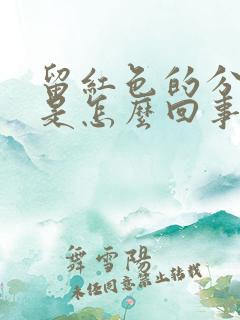 留紅色的分
是怎麼回事
舞雪陽
未经同意禁止转载